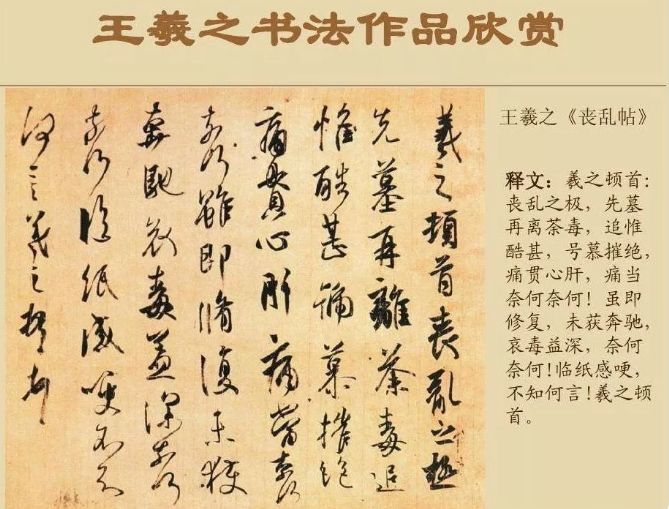 王羲之书法作品欣赏
羲之顿首丧乱之极
先墓再離荼毒追
惟酷甚號慕摧絶
痛貫心肝痛當奈何
奈何雖即脩復未獲
奔馳哀毒益深奈何
奈何臨紙感哽不知
何言羲之頓首
王羲之《丧乱帖》
释文：羲之顿首：
丧乱之极，先墓
再离荼毒，追惟
酷甚，号慕摧绝，
痛贯心肝，痛当
奈何奈何！虽即
修复，未获奔驰，
哀毒益深，奈何
奈何!临纸感哽，
不知何言!羲之顿
首。